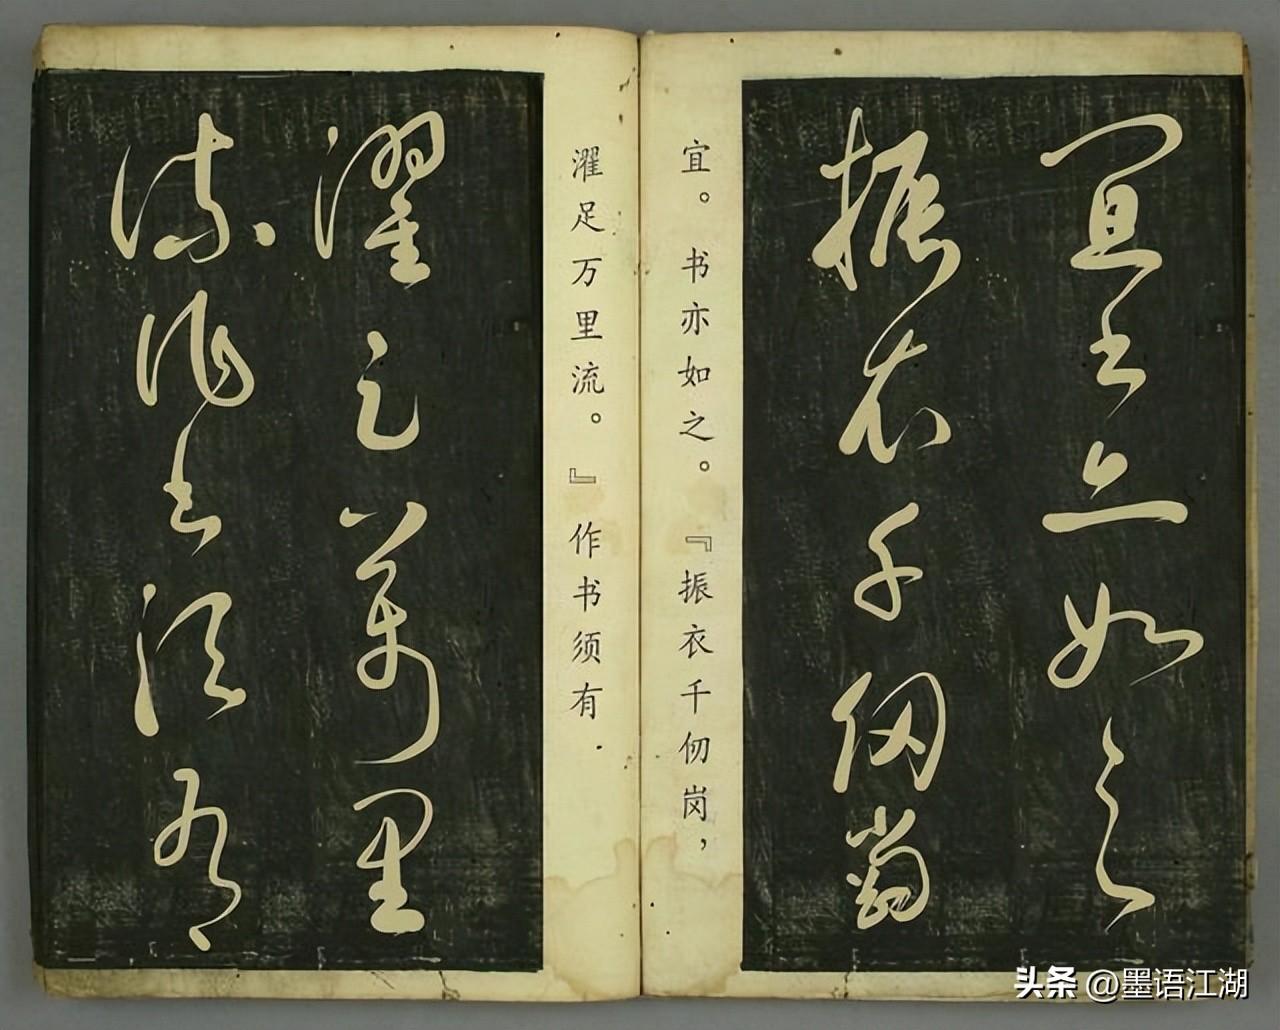 宜书亦如之
振衣千仞岗
宜。书亦如之。『振衣千仞岗，
濯足万里流。』作书须有.
濯足万里
流作书须有
头条 @墨语江湖